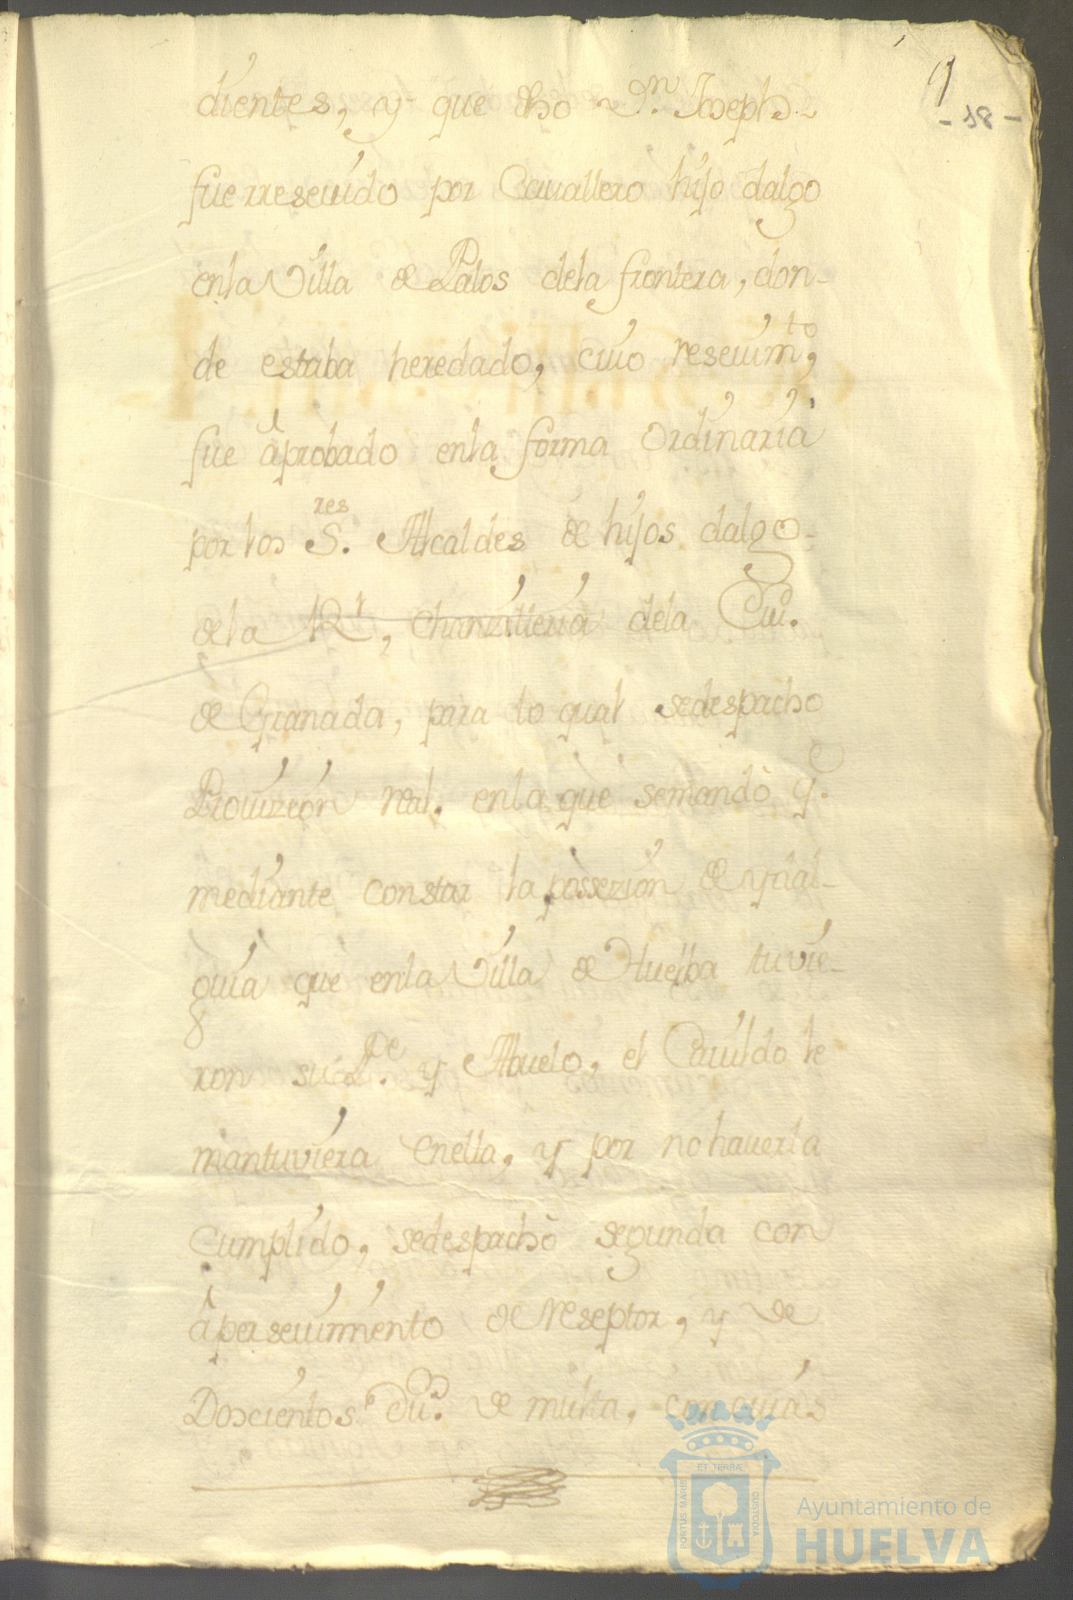 9
- 18 -
dientes, y que dho Dn. Joseph.
fue rresevido por Cavallero hijo dalgo
enla Villa de Palos dela frontera, don-
de estaba heredado, cuio resevimto,
fue àprobado enla forma Ordinaria
por los Sres. Alcaldes de hijos dalgo
dela Rl, Chanzilleria dela Ciu.
de Granada, para lo qual sedespacho
Provizion real. enla que semandò qe.
mediante constar la possezion de yñal-
guia que enla Villa de Huelba tuvie-
ron su Pe. y Abuelo, el Cavildo le
mantuviera Enella, y por no haverla
Cumplido, sedespachò segunda con
àpersevimiento de reseptor, y de
Doscientos Dus. de multa, con cuias
PORTUS MARIS
ET TERRÆ
CUSTODIA
Ayuntamiento de
HUELVA